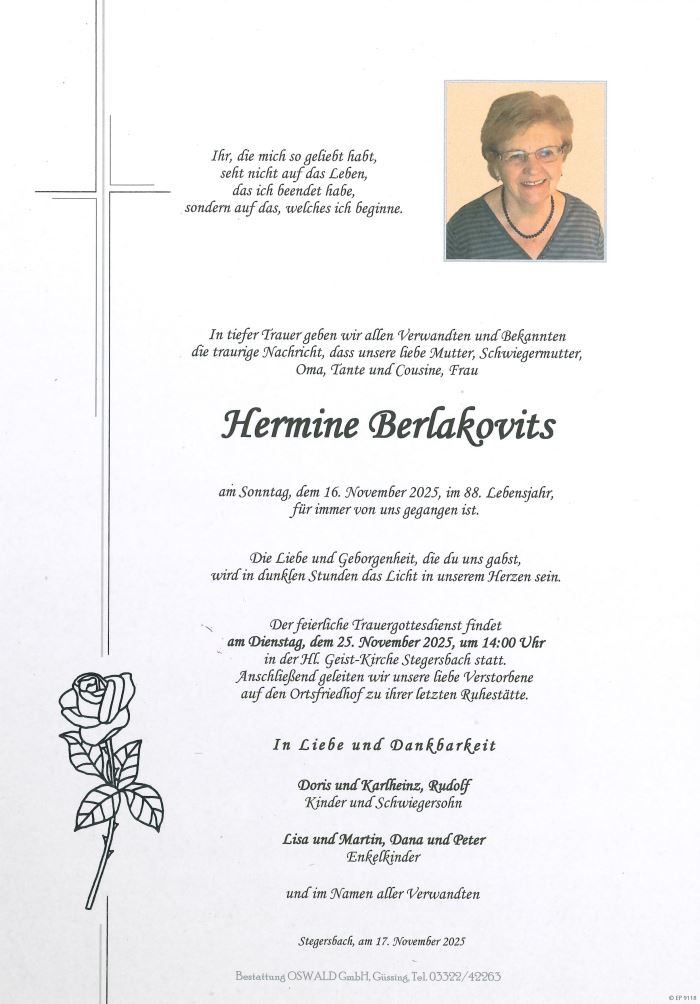 Ihr, die mich so geliebt habt,
seht nicht auf das Leben,
das ich beendet habe,
sondern auf das, welches ich beginne.
In tiefer Trauer geben wir allen Verwandten und Bekannten
die traurige Nachricht, dass unsere liebe Mutter, Schwiegermutter,
Oma, Tante und Cousine, Frau
Hermine Berlakovits
am Sonntag, dem 16. November 2025, im 88. Lebensjahr,
für immer von uns gegangen ist.
Die Liebe und Geborgenheit, die du uns gabst,
wird in dunklen Stunden das Licht in unserem Herzen sein.
Der feierliche Trauergottesdienst findet
am Dienstag, dem 25. November 2025, um 14:00 Uhr
in der Hl. Geist-Kirche Stegersbach statt.
Anschließend geleiten wir unsere liebe Verstorbene
auf den Ortsfriedhof zu ihrer letzten Ruhestätte.
In Liebe und Dankbarkeit
Doris und Karlheinz, Rudolf
Kinder und Schwiegersohn
Lisa und Martin, Dana und Peter
Enkelkinder
und im Namen aller Verwandten
Stegersbach, am 17. November 2025
Bestattung OSWALD GmbH, Güssing, Tel. 03322/42263